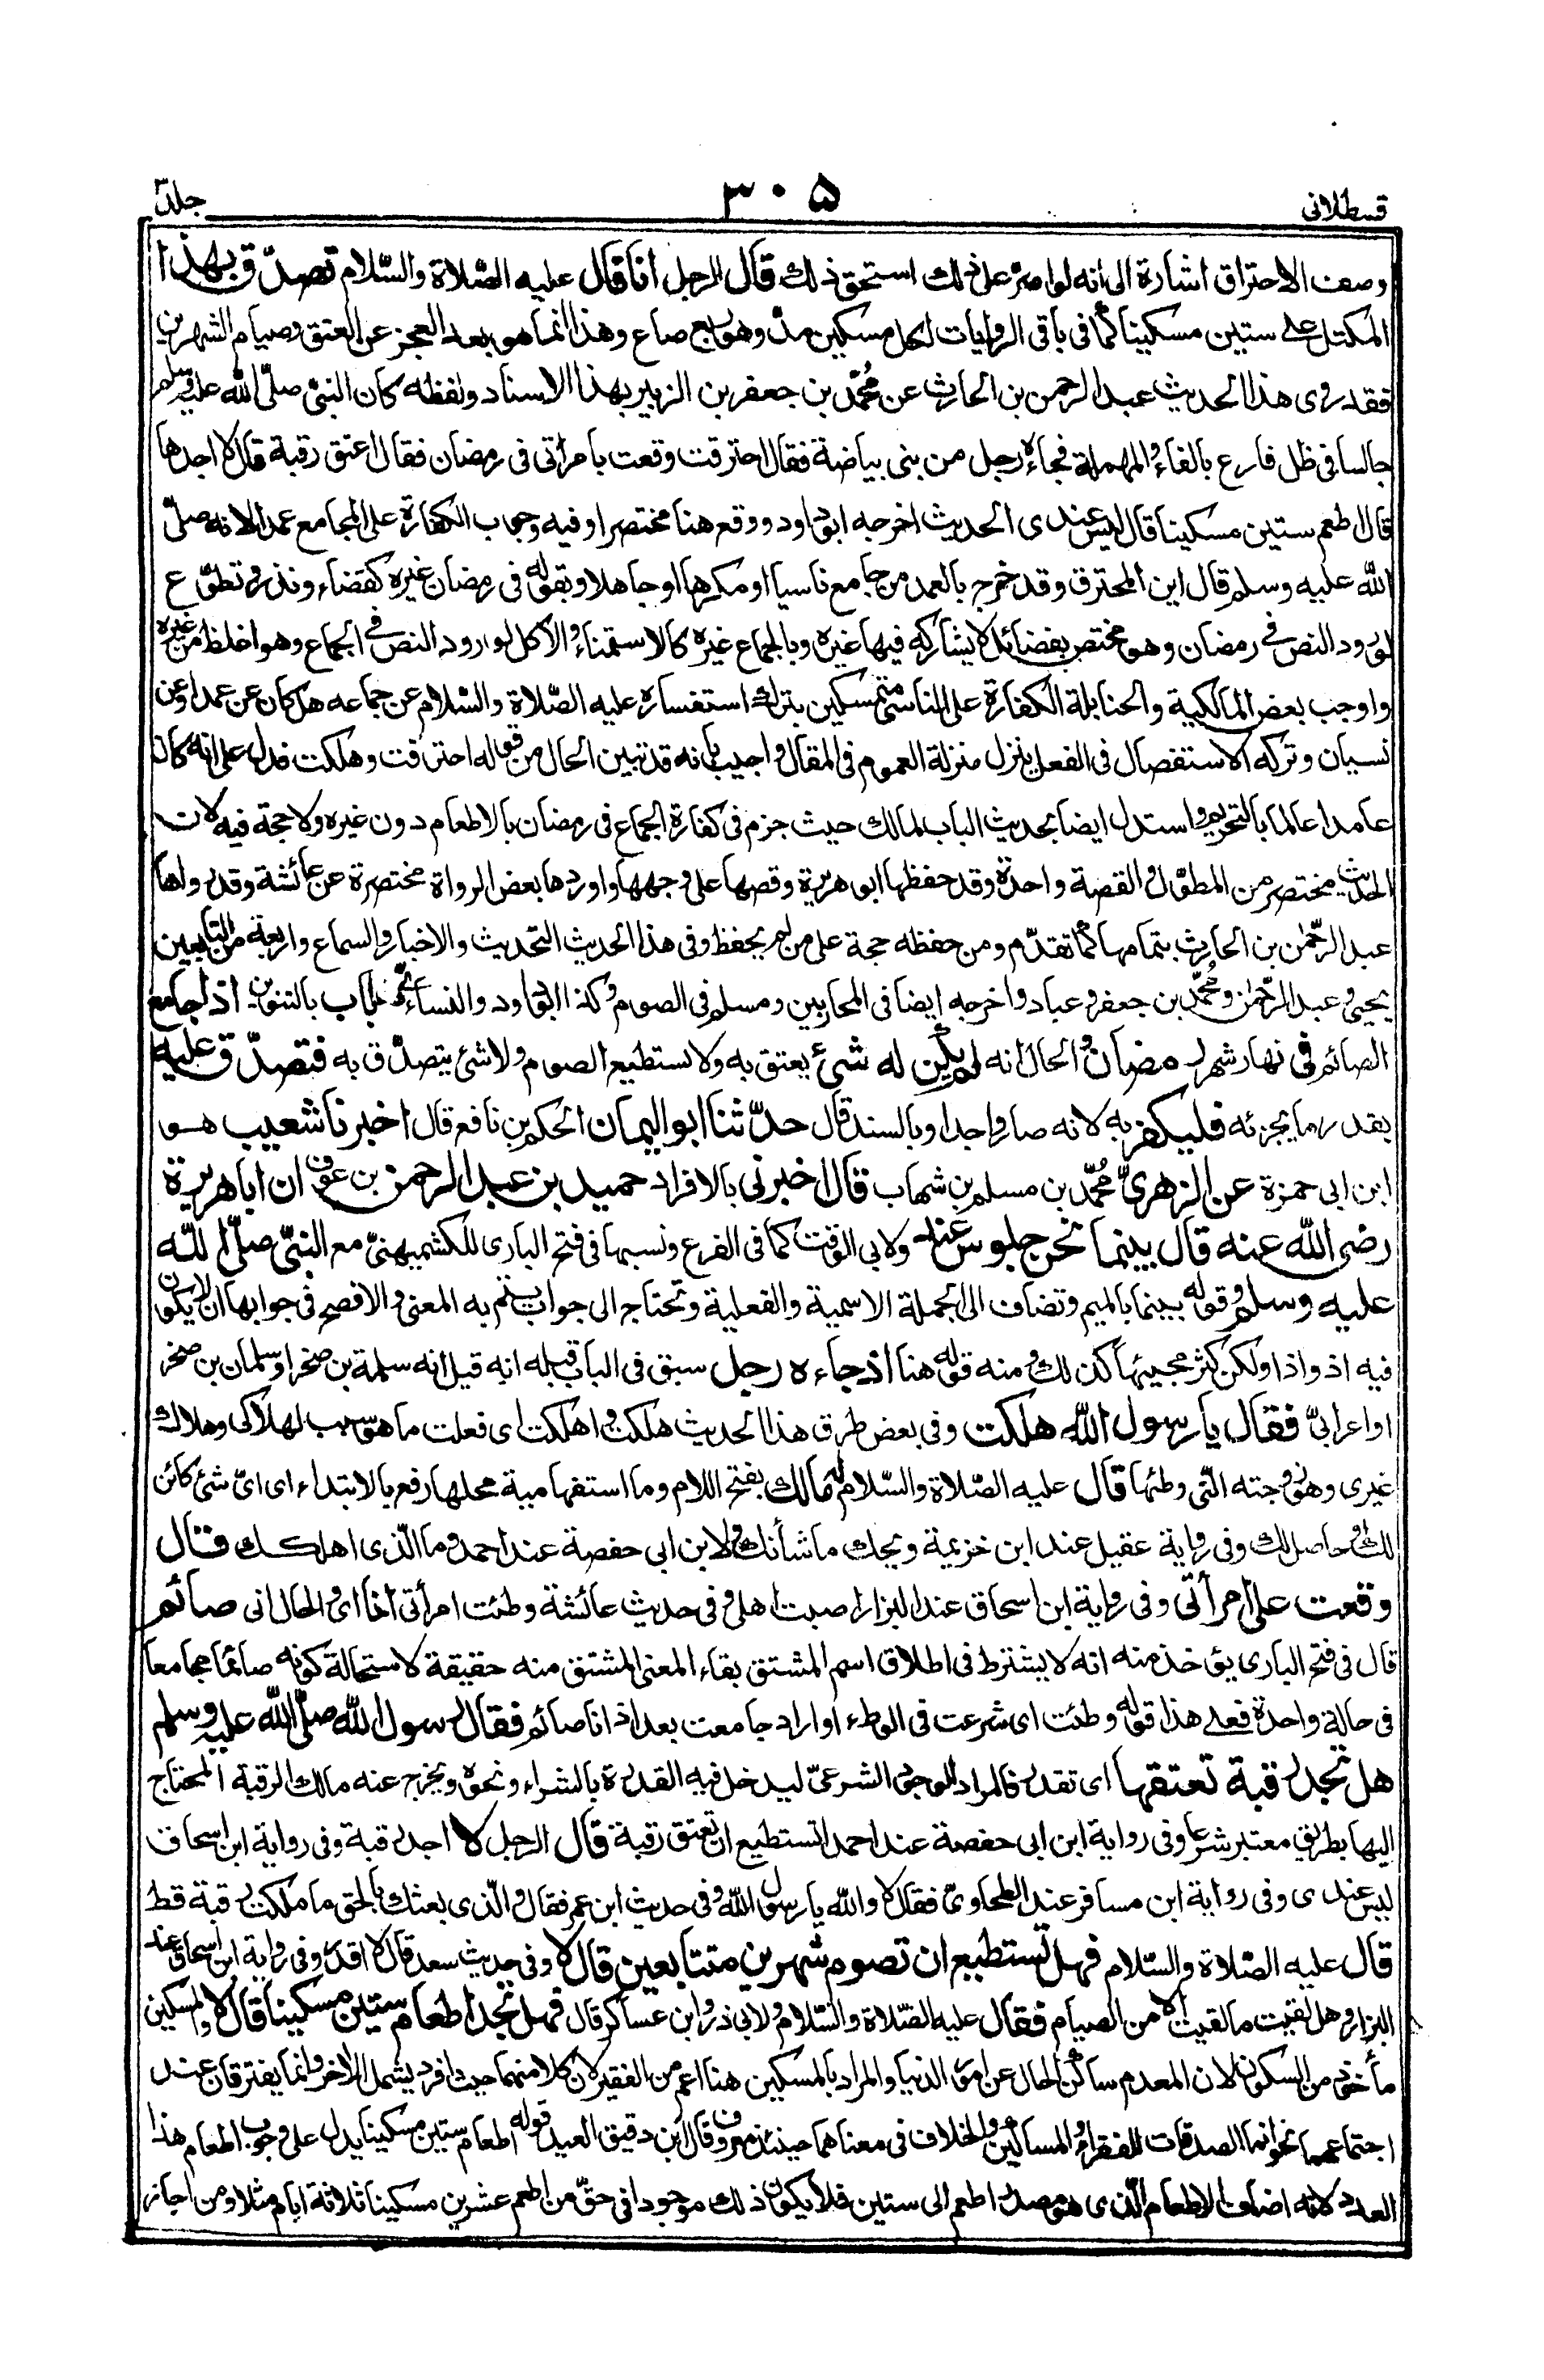 قسطلانی ۳۰۵ جلد۳
وصف الاحتراق اشارة الی انه لو اصرّ علی ذلك استحق ذلك قال الرجل انا قال علیه الصّلاة والسّلام تصدّق بهذا
المکتل علی ستین مسکینا کما فی باقی الروایات لکل مسکین مدّ وهو ربع صاع وهذا انما هو بعد العجز عن العتق وصیام الشهرین
فقد روی هذا الحدیث عبد الرحمن بن الحارث عن محمّد بن جعفر بن الزبیر بهذا الاسناد ولفظه کان النبیّ صلّی الله علیه وسلم
جالسا فی ظل فارع بالفاء والمهملة فجاءه رجل من بنی بیاضة فقال احترقت وقعت بامرأتی فی رمضان فقال اعتق رقبة قال لا اجدها
قال اطعم ستین مسکینا قال لیس عندی الحدیث اخرجه ابو داود ووقع هنا مختصرا وفیه وجوب الکفارة علی المجامع عمدا لانه صلّی
الله علیه وسلم قال این المحترق وقد خرج بالعمد من جامع ناسیا او مکرها او جاهلا وبقوله فی رمضان غیره کقضاء ونذر وتطوّع
لورود النص فی رمضان وهو مختص بفضائل لا یشارکه فیها غیره وبالجماع غیره کالاستمناء والاکل لورود النص فی الجماع وهو اغلظ من غیره
واوجب بعض المالکیة والحنابلة الکفارة علی الناسی متمسکین بترك استفساره علیه الصّلاة والسّلام عن جماعه هل کان عن عمد او عن
نسیان وترکه الاستفصال فی الفعل ینزل منزلة العموم فی المقال واجیب بانه قد تبین الحال من قوله احترقت وهلکت فدل علی انه کان
عامدا عالما بالتحریم واستدل ایضا بحدیث الباب لمالك حیث جزم فی کفارة الجماع فی رمضان بالاطعام دون غیره ولا حجة فیه لان
الحدیث مختصر من المطوّل والقصة واحدة وقد حفظها ابو هریرة وقصها علی وجهها واوردها بعض الرواة مختصرة عن عائشة وقد رواها
عبد الرّحمٰن بن الحارث بتمامها کما تقدّم ومن حفظه حجة علی من لم یحفظ وفی هذا الحدیث التحدیث والاخبار والسماع واربعة من التابعین
یحیی وعبد الرّحمٰن ومحمّد بن جعفر وعباد واخرجه ایضا فی المحاربین ومسلم فی الصوم وکذا ابو داود والنسائی باب بالتنوین اذا جامع
الصائم فی نهار شهر رمضان والحال انه لم یکن له شیٔ یعتق به ولا یستطیع الصوم ولا شیٔ یتصدّق به فتصدّق علیه
بقدر ما یجزئه فلیکفر به لانه صار واجدا وبالسند قال حدّثنا ابو الیمان الحکم بن نافع قال اخبرنا شعیب هو
ابن ابی حمزة عن الزهریّ محمّد بن مسلم بن شهاب قال اخبرنی بالافراد حمید بن عبد الرحمن بن عوف ان ابا هریرة
رضی الله عنه قال بینما نحن جلوس عند ولابی الوقت کما فی الفرع ونسبها فی فتح الباری للکشمیهنیّ مع النبیّ صلّی الله
علیه وسلم وقوله بینما بالمیم وتضاف الی الجملة الاسمیة والفعلیة وتحتاج الی جواب یتم به المعنی والافصح فی جوابها ان لا یکون
فیه اذ واذا ولکن کثر مجیئها کذلك ومنه قوله هنا اذ جاءه رجل سبق فی الباب قبله انه قیل انه سلمة بن صخر او سلمان بن صخر
او اعرابیّ فقال یا رسول الله هلکت وفی بعض طرق هذا الحدیث هلکت واهلکت ای فعلت ما هو سبب لهلاکی وهلاك
غیری وهو زوجته الّتی وطئها قال علیه الصّلاة والسّلام له مالك بفتح اللام وما استفهامیة محلها رفع بالابتداء ای ایّ شیٔ کائن
لك او حاصل لك وفی روایة عقیل عند ابن خزیمة ویحك ما شأنك ولابن ابی حفصة عند احمد وما الّذی اهلکك قال
وقعت علی امرأتی وفی روایة ابن اسحاق عند البزار اصبت اهلی وفی حدیث عائشة وطئت امرأتی انا ای والحال انی صائم
قال فی فتح الباری یؤخذ منه انه لا یشترط فی اطلاق اسم المشتق بقاء المعنی المشتق منه حقیقة لاستحالة کونه صائما مجامعا
فی حالة واحدة فعلی هذا قوله وطئت ای شرعت فی الوطء او اراد جامعت بعد اذ انا صائم فقال رسول الله صلّی الله علیه وسلم
هل تجد رقبة تعتقها ای تقدر فالمراد الوجود الشرعیّ لیدخل فیه القدرة بالشراء ونحوه ویخرج عنه مالك الرقبة المحتاج
الیها بطریق معتبر شرعا وفی روایة ابن ابی حفصة عند احمد اتستطیع ان تعتق رقبة قال الرجل لا اجد رقبة وفی روایة ابن اسحاق
لیس عندی وفی روایة ابن مسافر عند الطحاویّ فقال لا والله یا رسول الله وفی حدیث ابن عمر فقال والّذی بعثك بالحق ما ملکت رقبة قط
قال علیه الصّلاة والسّلام فهل تستطیع ان تصوم شهرین متتابعین قال لا وفی حدیث سعد قال لا اقدر وفی روایة ابن اسحاق عند
البزار وهل لقیت ما لقیت الا من الصیام فقال علیه الصّلاة والسّلام ولابی ذر وابن عساکر قال فهل تجد اطعام ستین مسکینا قال لا والمسکین
مأخوذ من السکون لان المعدم ساکن الحال عن امور الدنیا والمراد بالمسکین هنا اعم من الفقیر لان کلا منهما حیث افرد یشمل الاخر وانما یفترقان عند
اجتماعهما نحو انما الصدقات للفقراء والمساکین والخلاف فی معناهما حینئذ معروف وقال ابن دقیق العید قوله اطعام ستین مسکینا یدل علی وجوب اطعام هذا
العدد لانه اضاف الاطعام الّذی هو مصدر اطعم الی ستین فلا یکون ذلك موجودا فی حقّ من اطعم عشرین مسکینا ثلاثة ایام مثلا ومن اجاز